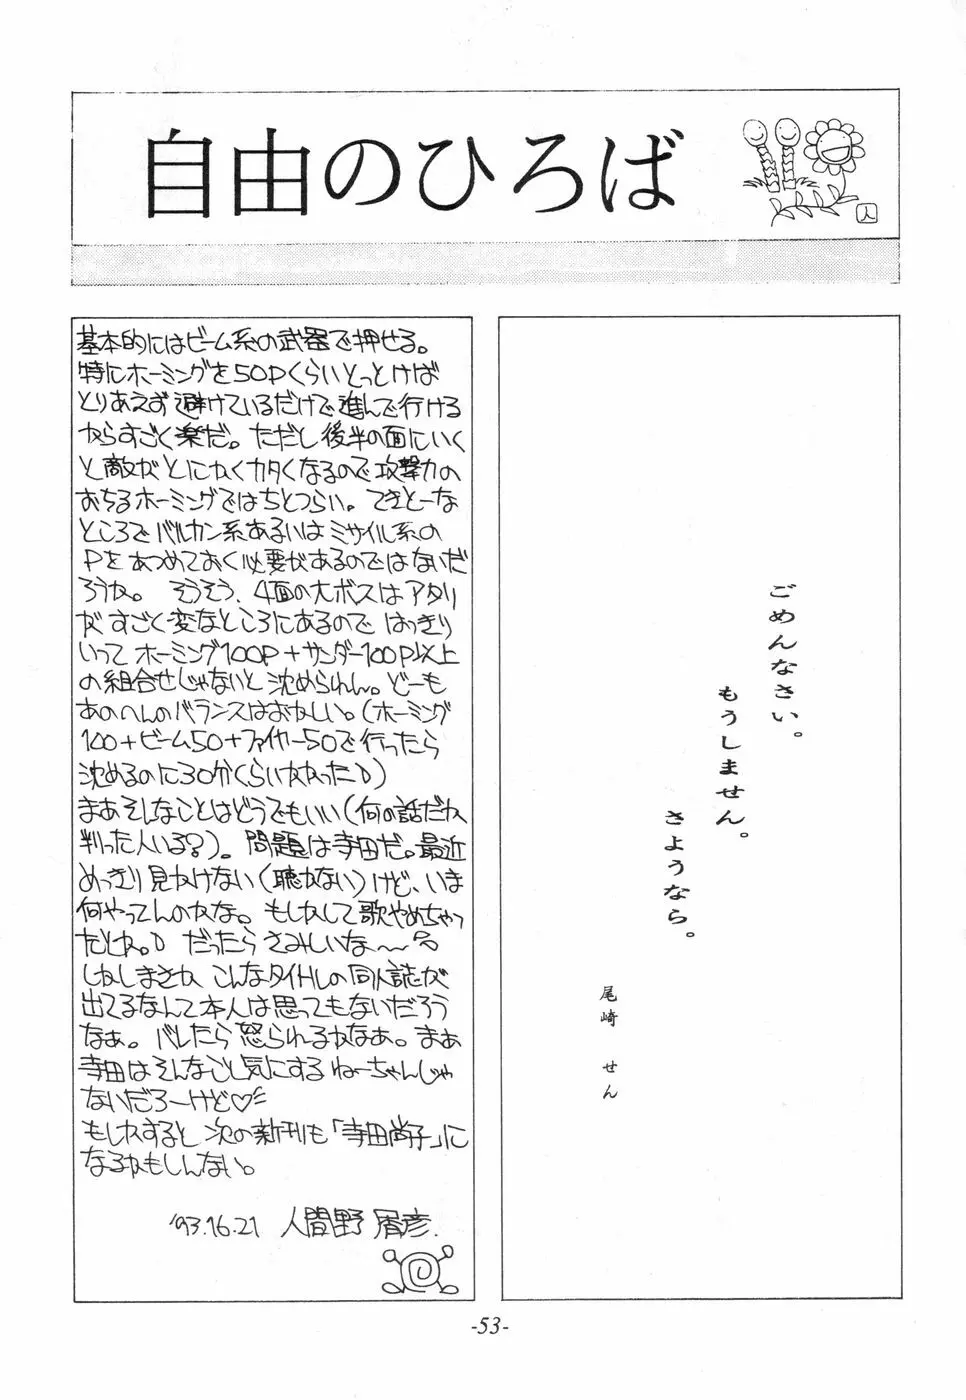 自由のひろば
人
基本的にはビーム系の武器で押せる。
特にホーミングを50Pくらいとっとけば
とりあえず避けているだけで進んで行ける
からすごく楽だ。ただし後半の面にいく
と敵がとにかくカタくなるので攻撃力の
おちるホーミングではちとつらい。てきとーな
ところでバルカン系あるいはミサイル系の
Pをあつめておく必要があるのではないだ
ろうか。そうそう、4面の大ボスはアタリ
がすごく変なところにあるのではっきり
いってホーミング100P+サンダー100P以上
の組合せじゃないと沈められん。どーも
あのへんのバランスはおかしい。(ホーミング
100+ビーム50+ファイヤー50で行ったら
沈めるのに30分くらいかかった)
まあそんなことはどうでもいい(何の話だか
判った人いる?)。問題は寺田だ。最近
めっきり見かけない(聴かない)けど、いま
何やってんのかな。もしかして歌やめちゃっ
たとか。だったらさみしいな〜
しかしまさか こんなタイトルの同人誌が
出てるなんて本人は思ってもないだろう
なぁ。バレたら怒られるかなぁ。まぁ
寺田はそんなこと気にするねーちゃんじゃ
ないだろーけど♡
もしかすると次の新刊も「寺田尚子」に
なるかもしんない。
'93.16.21 人間野 屑彦.
ごめんなさい。
もうしません。
さようなら。
尾崎 せん
-53-